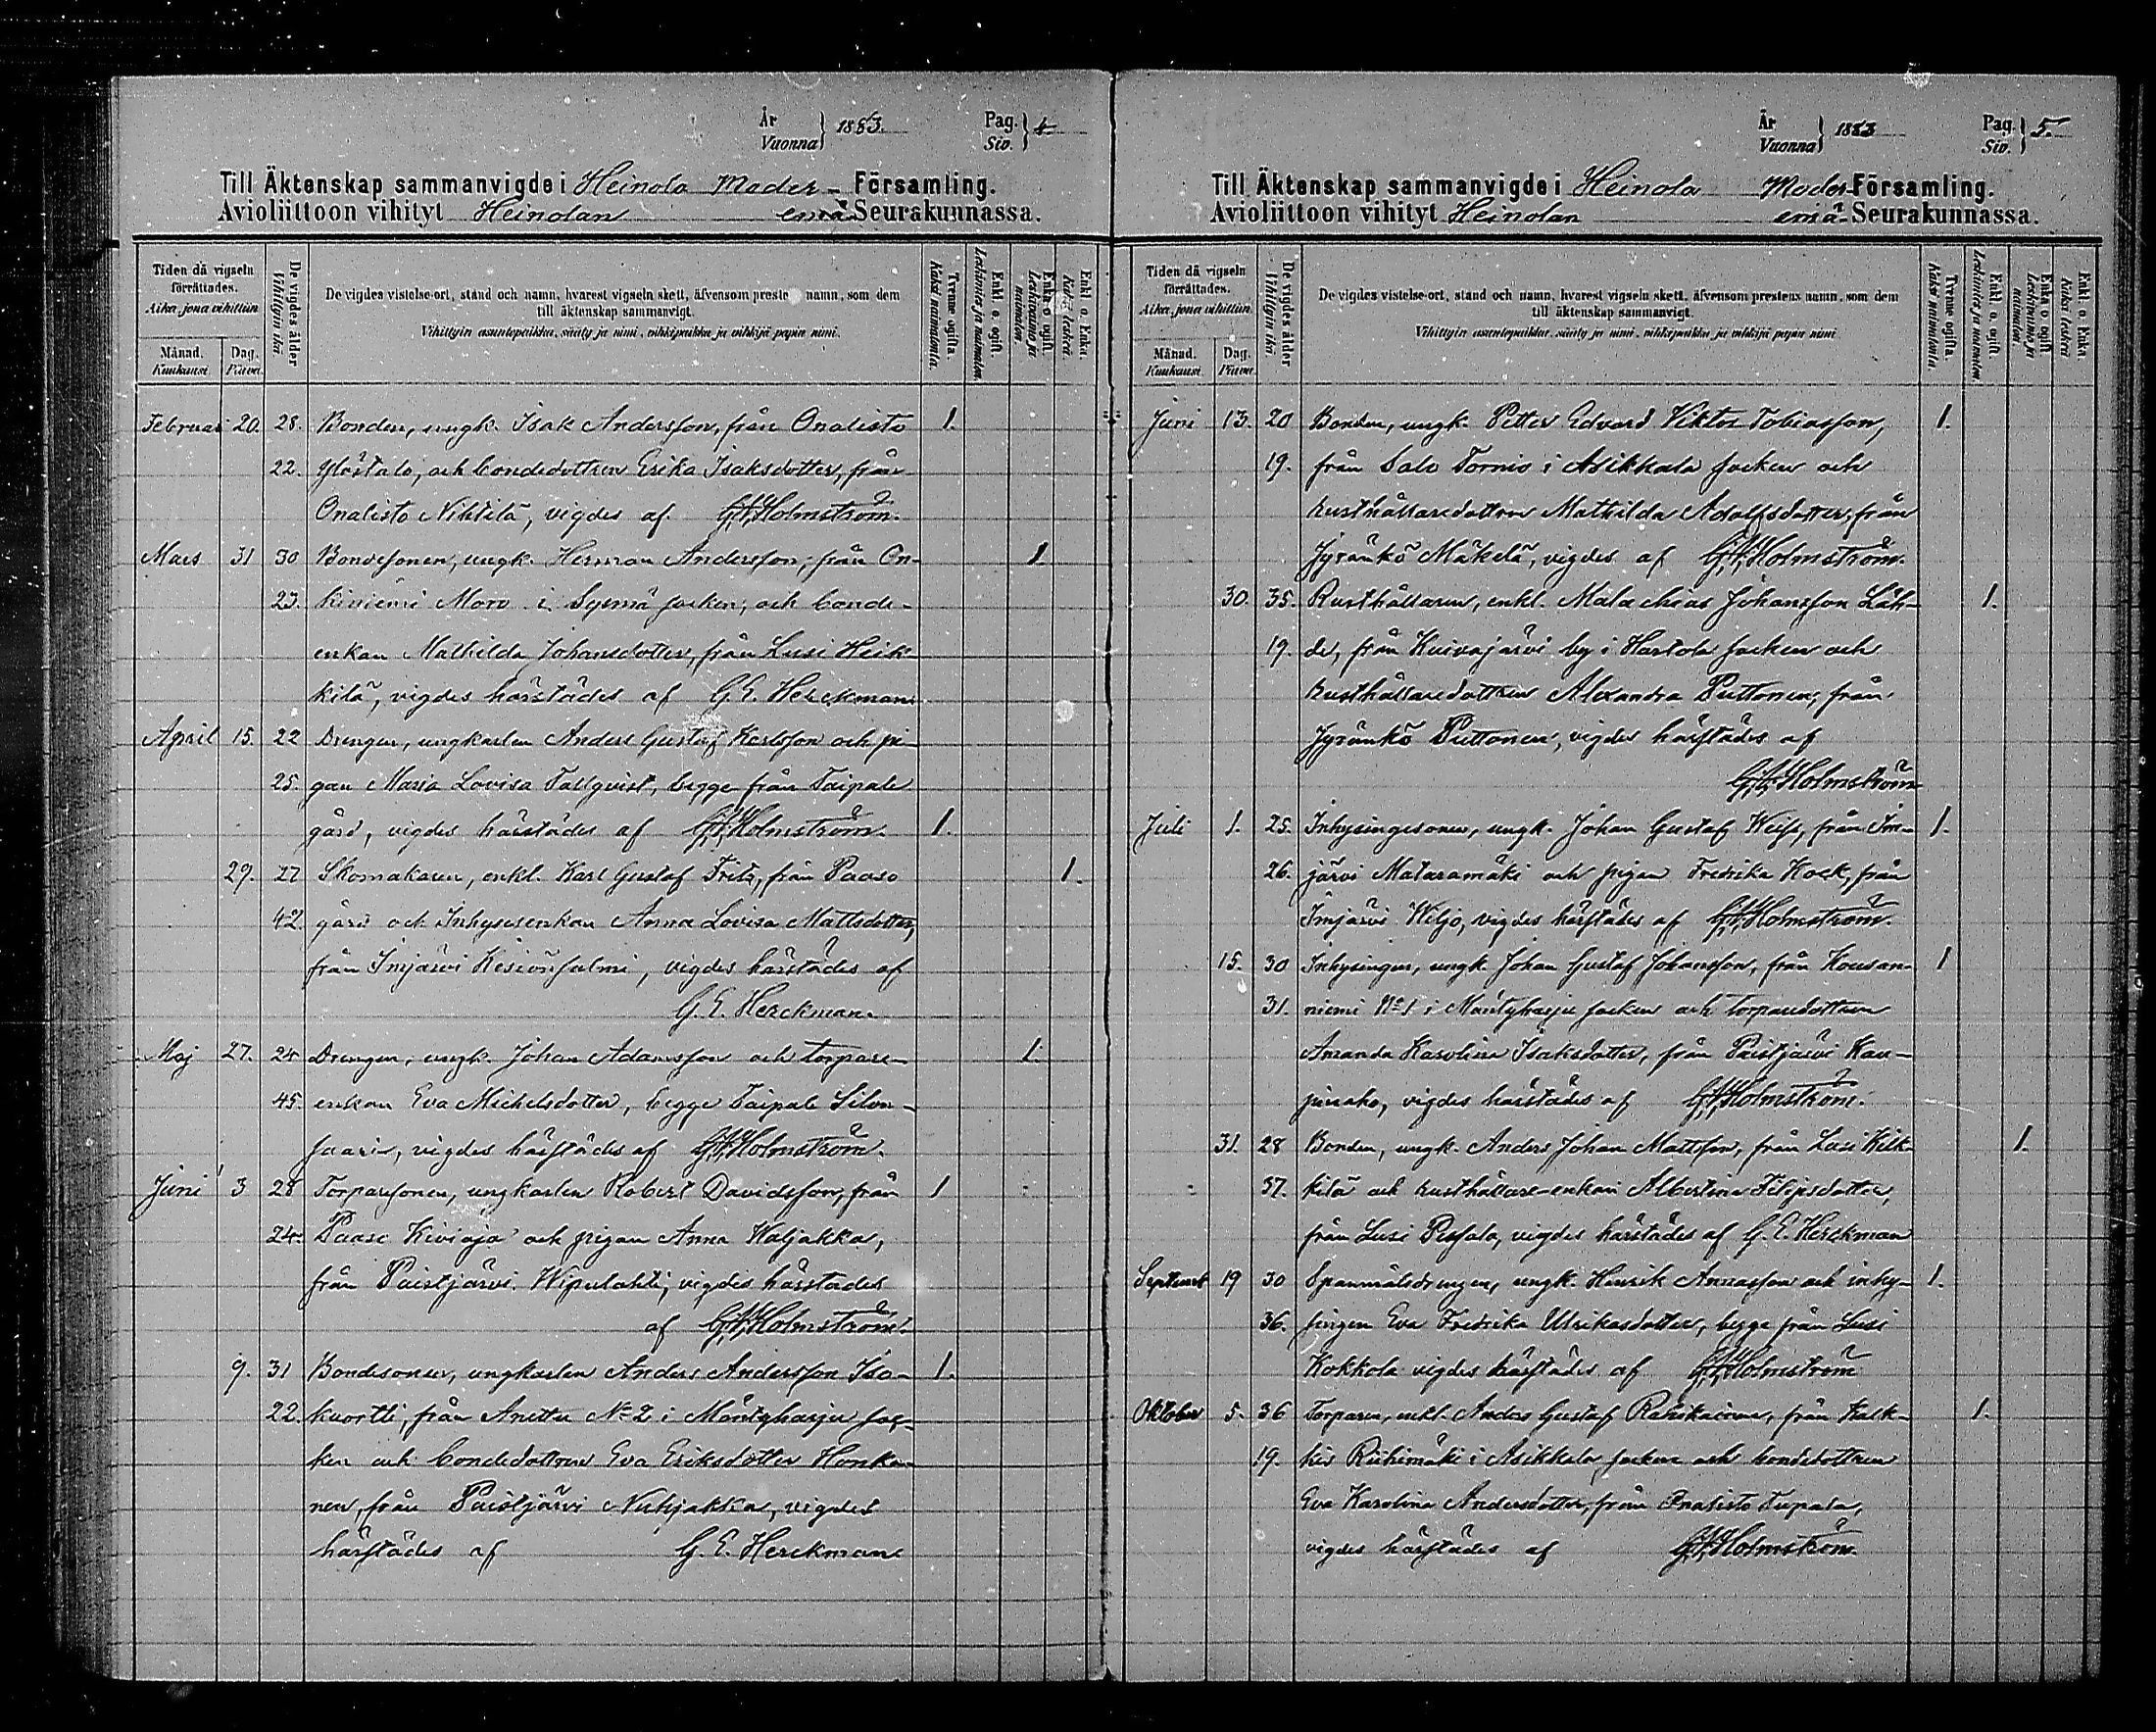 År
Vuonna } 1883.
Pag.
Siv. } 4
Till Äktenskap sammanvigde i Heinola Moder- Församling.
Avioliittoon vihityt Heinolan emä Seurakunnassa.
Tiden då vigseln förrättades.
Aika, jona vihittiin
Månad. Kuukausi.
Dag. Päivä.
De vigdes ålder
Vihittyin ikä
De vigdes vistelse-ort, stånd och namn, hvarest vigseln skett, äfvensom prestens namn, som dem
till äktenskap sammanvigt.
Vihittyin asuntopaikka, sääty ja nimi, vihkipaikka ja vihkijä papin nimi.
Tvenne ogifta. Kaksi naimatonta.
Enkl. o. ogift. Leskimies ja naimaton.
Enka o ogift. Leskivaimo ja naimaton
Enkl. o Enka. Kaksi leskeä.
Februari 20. 28. Bonden, ungk. Isak Andersson, från Onalisto 1.
22. Ylöstalo, och bondedottren Erika Isaksdotter, från
Onalisto Nihtilä, vigdes af G.A. Holmström.
Mars 31 30 Bondesonen, ungk. Herman Andersson, från On- 1.
23. kiniemi Moro i Sysmä socken, och bonde-
enkan Mathilda Johansdotter, från Lusi Heik-
kilä, vigdes härstädes af G. E. Herckman
April 15. 22 Drengen, ungkarlen Anders Gustaf Karlsson och pi-
25. gan Maria Lovisa Tallqvist, begge från Taipale
gård, vigdes härstädes af G.A. Holmström. 1.
29. 27 Skomakaren, enkl. Karl Gustaf Fritz, från Paaso 1.
42. gård och Inhysesenkan Anna Lovisa Mattsdotter,
från Imjärvi salmi, vigdes härstädes af
G. E. Herckman.
Maj 27. 24 Drengen, ungk. Johan Adamsson och torpare- 1.
45. enkan Eva Michelsdotter, begge Taipale Silon-
saari, vigdes härstädes af G.A. Holmström.
Juni 3 28 Torparesonen, ungkarlen Robert Davidsson, från 1
24. Paaso Kivioja och pigan Anna Waljakka,
från Paistjärvi Wipulahti, vigdes härstädes
af G.A. Holmström.
9. 31 Bondesonen, ungkarlen Anders Andersson Iso- 1.
22. kuortti, från Anettu No 2 i Mäntyharju soc-
ken och bondedottren Eva Eriksdotter Honka-
nen, från Paistjärvi Nuhjakka, vigdes
härstädes af G. E. Herckman
År
Vuonna } 1883
Pag.
Siv. } 5.
Till Äktenskap sammanvigde i Heinola Moder-Församling.
Avioliittoon vihityt Heinolan emä-Seurakunnassa.
Tiden då vigseln förrättades.
Aika, jona vihittiin
Månad. Kuukausi.
Dag. Päivä.
De vigdes ålder
Vihittyin ikä
De vigdes vistelse-ort, stånd och namn, hvarest vigseln skett, äfvensom prestens namn, som dem
till äktenskap sammanvigt.
Vihittyin asuntopaikka, sääty ja nimi, vihkipaikka ja vihkijä papin nimi
Tvenne ogifta. Kaksi naimatonta
Enkl. o. ogift. Leskimies ja naimaton.
Enka o. ogift Leskivaimo ja naimaton
Enkl o Enka Kaksi leskeä
Juni 13. 20 Bonden, ungk. Petter Edvard Viktor Tobiasson, 1.
19. från Salo Tornio i Asikkala socken och
Rusthållaredottren Mathilda Adolfsdotter, från
Jyränkö Mäkelä, vigdes af G.A. Holmström.
30. 35. Rusthållaren, enkl. Malachias Johansson Läh- 1.
19. de, från Kuivajärvi by i Hartola socken och
Rusthållaredottren Alexandra Puttonen, från
Jyränkö Puttonen, vigdes härstädes af
G.A. Holmström
Juli 1. 25. Inhysingesonen, ungk. Johan Gustaf Weiss, från Im- 1.
26. järvi Mataramäki och pigan Fredrika Kock, från
Imjärvi Wiljo, vigdes härstädes af G.A. Holmström.
15. 30 Inhysingen, ungk. Johan Gustaf Johansson, från Kousan- 1
31. niemi No 1 i Mäntyharju socken och torparedottren
Amanda Karolina Isaksdotter, från Paistjärvi Kau-
, vigdes härstädes af G.A. Holmström.
31. 28 Bonden, ungk. Anders Johan Mattsson, från Lusi Keik- 1.
37. kilä och rusthållare-enkan Albertina Filipsdotter,
från Lusi Pessala, vigdes härstädes af G. E. Herckman
Septemb 19 30 Spannmålsdrengen, ungk. Henrik Annasson och inhy- 1.
36. singen Eva Fredrika Ulrikasdotter, begge från Lusi
Kokkola vigdes härstädes af G.A. Holmström
Oktober 5. 36 Torparen, enkl. Anders Gustaf från Kalk- 1.
19. kis Riihimäki i Asikkala socken och bondedottren
Eva Karolina Andersdotter, från Onalisto Tupala,
vigdes härstädes af G.A. Holmström.